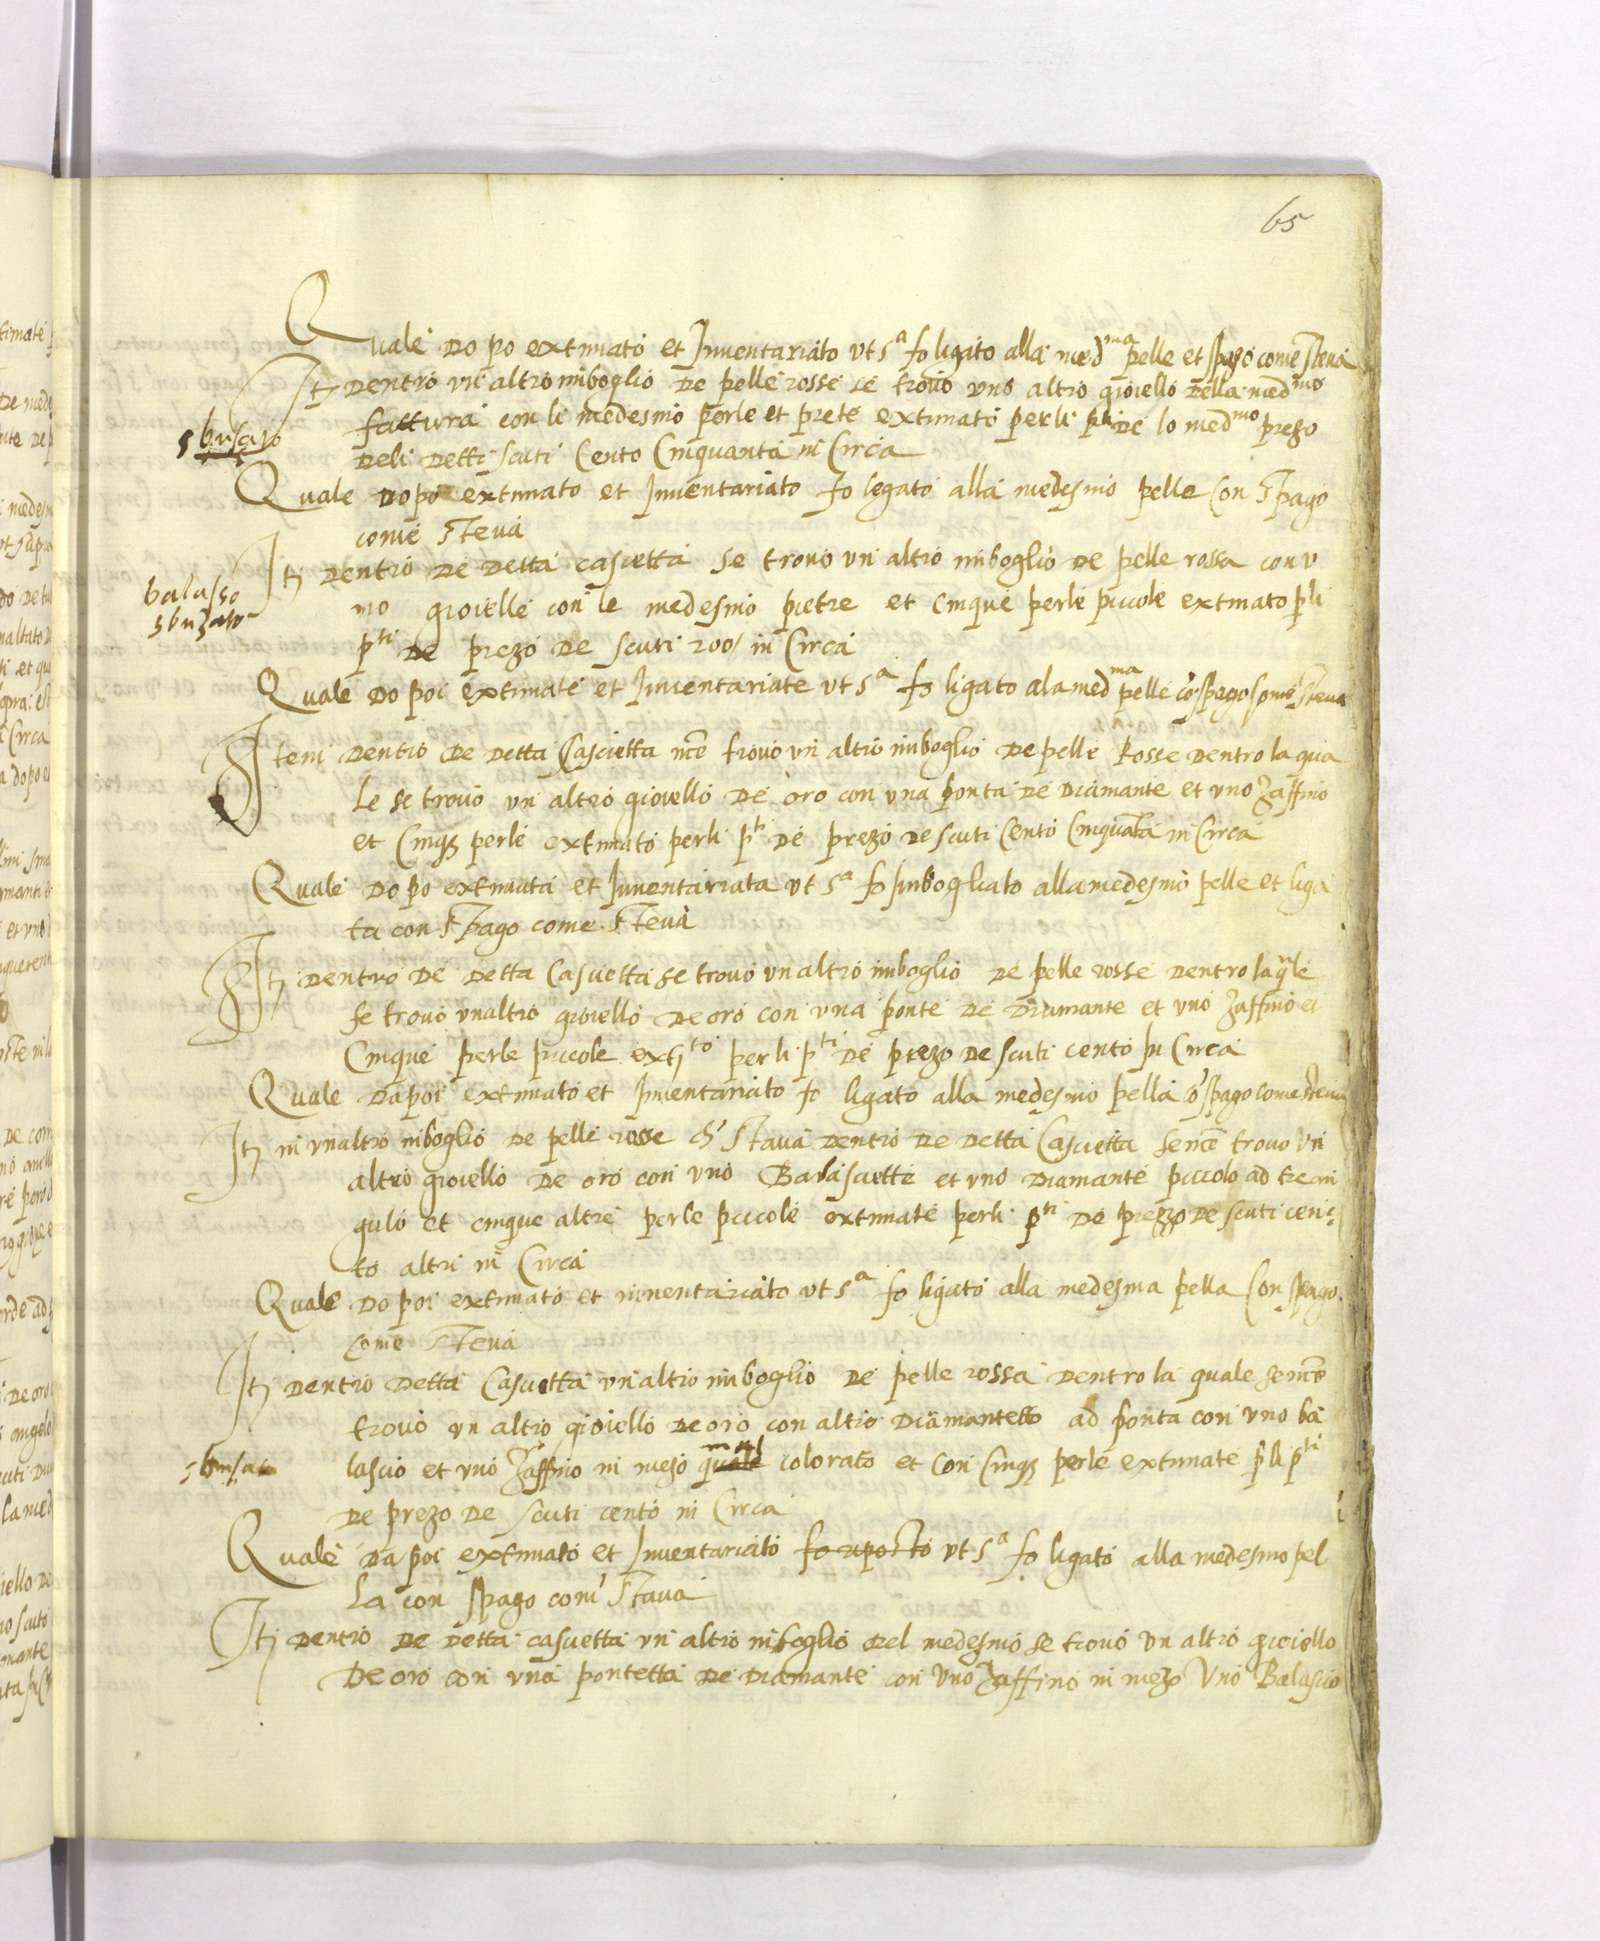 65
Quale do po extimato et Inventariato ut sa fo ligato alla medma pelle et spago come steva
Itj dentro un altro imboglio de pelle rosse se trovo uno altro gioiello della medmo
fattura con li medesmo perle et prete extimato perli pti de lo medmo prezo
deli detti scuti Cento Cinquanta in Circa
sbusato
Quale dopo extimato et Inventariato fo legato alla medesmo pelle Con spago
come steva
Itj dentro de detta cascetta se trovo un altro imboglio de pelle rossa con u
no gioielle con le medesmo pietre et cinque perle piccole extimato pli
pti de prezo de scuti 200/ in Circa
balasso
sbuzato
Quale do poi extimate et Inventariate ut sa fo ligato ala medma pelle co spago come steva
Item dentro de detta Cascietta nce trovo un altro imboglio de pelle Rosse dentro la qua
le se trovo un altro giovello de oro con una ponta de diamante et uno Zaffino
et Cinqz perle extimato perli pti de prezo de scuti Cento Cinquata in Circa
Quale do po extimata et Inventariata ut sa fo imbogliato alla medesmo pelle et liga
ta con spago come steva
Itj dentro de detta Cascietta se trovo un altro imboglio de pelle rosse dentro la qle
se trovo un altro gioiello de oro con una ponte de Diamante et uno Zaffino et
Cinque perle piccole extjto perli pti de prezo de scuti cento in Circa
Quale da poi extimato et Inventariato fo ligato alla medesmo pella co spago come steva
Itj in un altro imboglio de pelle rosse ch' stava dentro de detta Cascietta se nce trovo un
altro gioiello de oro con uno Balascietto et uno diamante piccolo ad trean
gulo et cinque altre perle piccole extimate perli pti de prezzo de scuti cen
to altri in Circa
Quale do poi extimato et inventariato ut sa fo ligato alla medesma pella Con spago
come steva
Itj dentro detta Cascietta un altro imboglio de pelle rossa dentro la quale se nce
trovo un altro gioiello de oro con altro diamantetto ad ponta con uno ba
lascio et uno Zaffino in mezo quale mal colorato et con Cinqz perle extimate pli pti
sbusato
de prezo de scuti cento in Circa
Quale da poi extimato et Inventariato fo aposto ut sa fo ligato alla medesmo pel
la con spago com' stava
Itj dentro de detta cascetta un altro imboglio del medesmo se trovo un altro gioiello
de oro con una pontetta de diamante con uno Zaffino in mezo uno Balascio